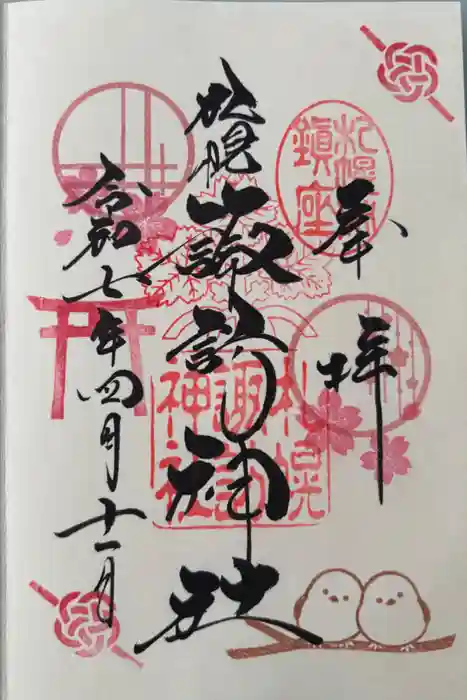 奉拝
札幌
鎮座
札幌
諏訪神社
札幌
諏訪
神社
令和七年四月十一日